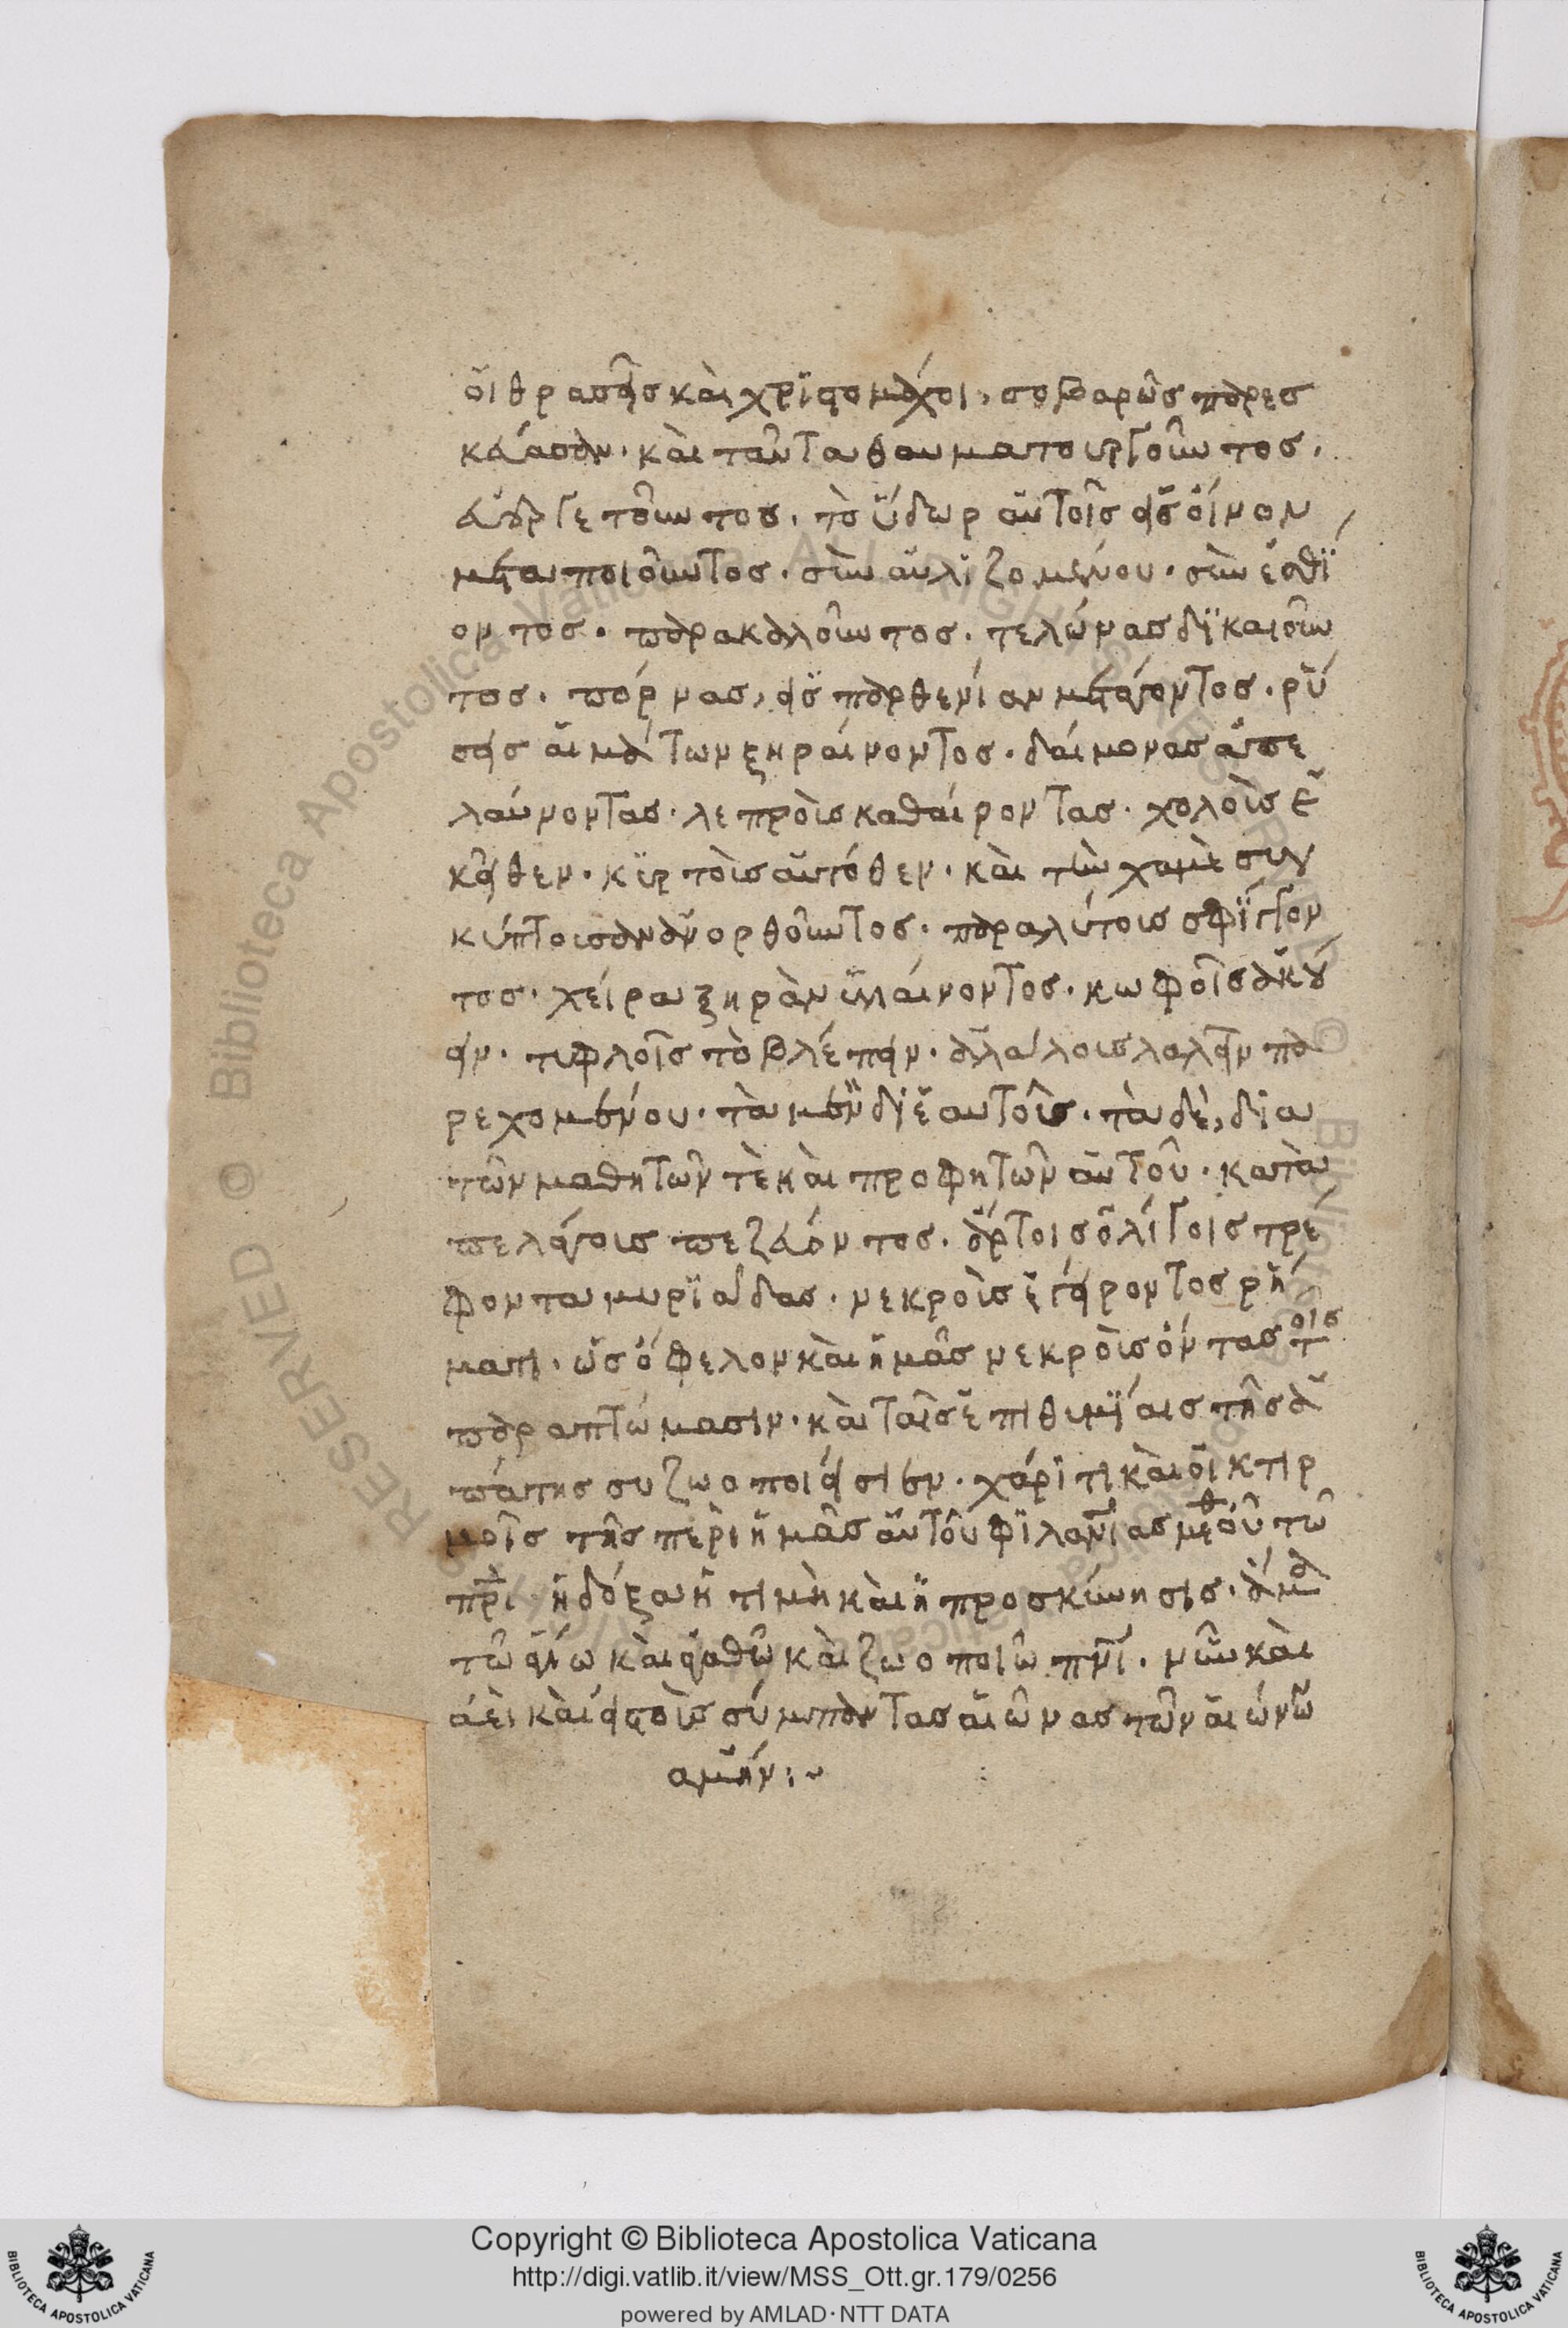 οἱ θρασεῖς καὶ χριστομάχοι, σοβαρῶς παρες
κεύασαν. καὶ ταῦτα θαυματουργοῦντος.
εὐεργετοῦντος. τὸ ὕδωρ αὐτοῖς εἰς οἶνον
μεταποιοῦντος. σὺν αὐλιζομένου. σὺν ἐσθί
οντος. παρακαλοῦντος. τελώνας δικαιοῦν
τος. πόρνας, εἰς παρθενίαν μετάγοντος. ῥύ
σεις αἱμάτων ξηραίνοντος. δαίμονας ἀπε
λαύνοντας. λεπροὺς καθαίροντας. χολοὺς ἐ
κεῖθεν. κυρτοὺς αὐτόθεν. καὶ τὴν χαμὲ συγ
κύπτουσαν ἀνορθοῦντος. παραλύτους σφίγγον
τος. χεῖρα ξηρὰν ὑγιαίνοντος. κωφοῖς ἀκού
ειν. τυφλοῖς τὸ βλέπειν. ἀλάλοις λαλεῖν πα
ρεχομένου. τὰ μὲν δι' ἑαυτοῖς. τὰ δὲ, δια
τῶν μαθητῶν τὲ καὶ προφητῶν αὐτοῦ. κατὰ
πελάγους πεζεύοντος. ἄρτοις ὀλίγοις τρέ
φοντα μυριάδας. νεκροὺς ἐγείροντος ῥή
ματι. ὡς ὄφελον καὶ ἡμᾶς νεκροὺς ὄντας τοῖς
παραπτώμασιν. καὶ ταῖς ἐπιθυμίαις τῆς ἀ
πάτης συζωοποιήσιεν. χάριτι καὶ οἰκτιρ
μοῖς τῆς περὶ ἡμᾶς αὐτοῦ φιλανίας μεθ οὗ τῶ
πρὶ ἡ δόξα ἡ τιμὴ καὶ ἡ προσκύνησις. ἅμα
τῶ ἁγίω καὶ ἀγαθῶ καὶ ζωοποιῶ πνὶ. νῦν καὶ
ἀεὶ καὶ εἰς τοὺς σύμπαντας αἰῶνας τῶν αἰώνω
αμήν:~
Copyright © Biblioteca Apostolica Vaticana
http://digi.vatlib.it/view/MSS_Ott.gr.179/0256
powered by AMLAD·NTT DATA